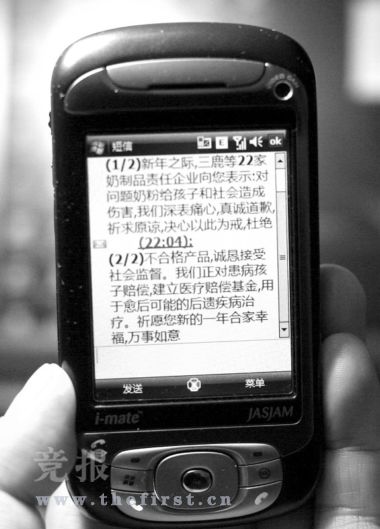 短信
ok
(1/2)新年之际,三鹿等22家
奶制品责任企业向您表示:对
问题奶粉给孩子和社会造成
伤害,我们深表痛心,真诚道歉,
祈求原谅,决心以此为戒,杜绝
(22:04):
(2/2)不合格产品,诚恳接受
社会监督。我们正对患病孩
子赔偿,建立医疗赔偿基金,用
于愈后可能的后遗疾病治
疗。祈愿您新的一年合家幸
福,万事如意
发送
菜单
i-mate
JASJAM
竞报
www.thefirst.cn